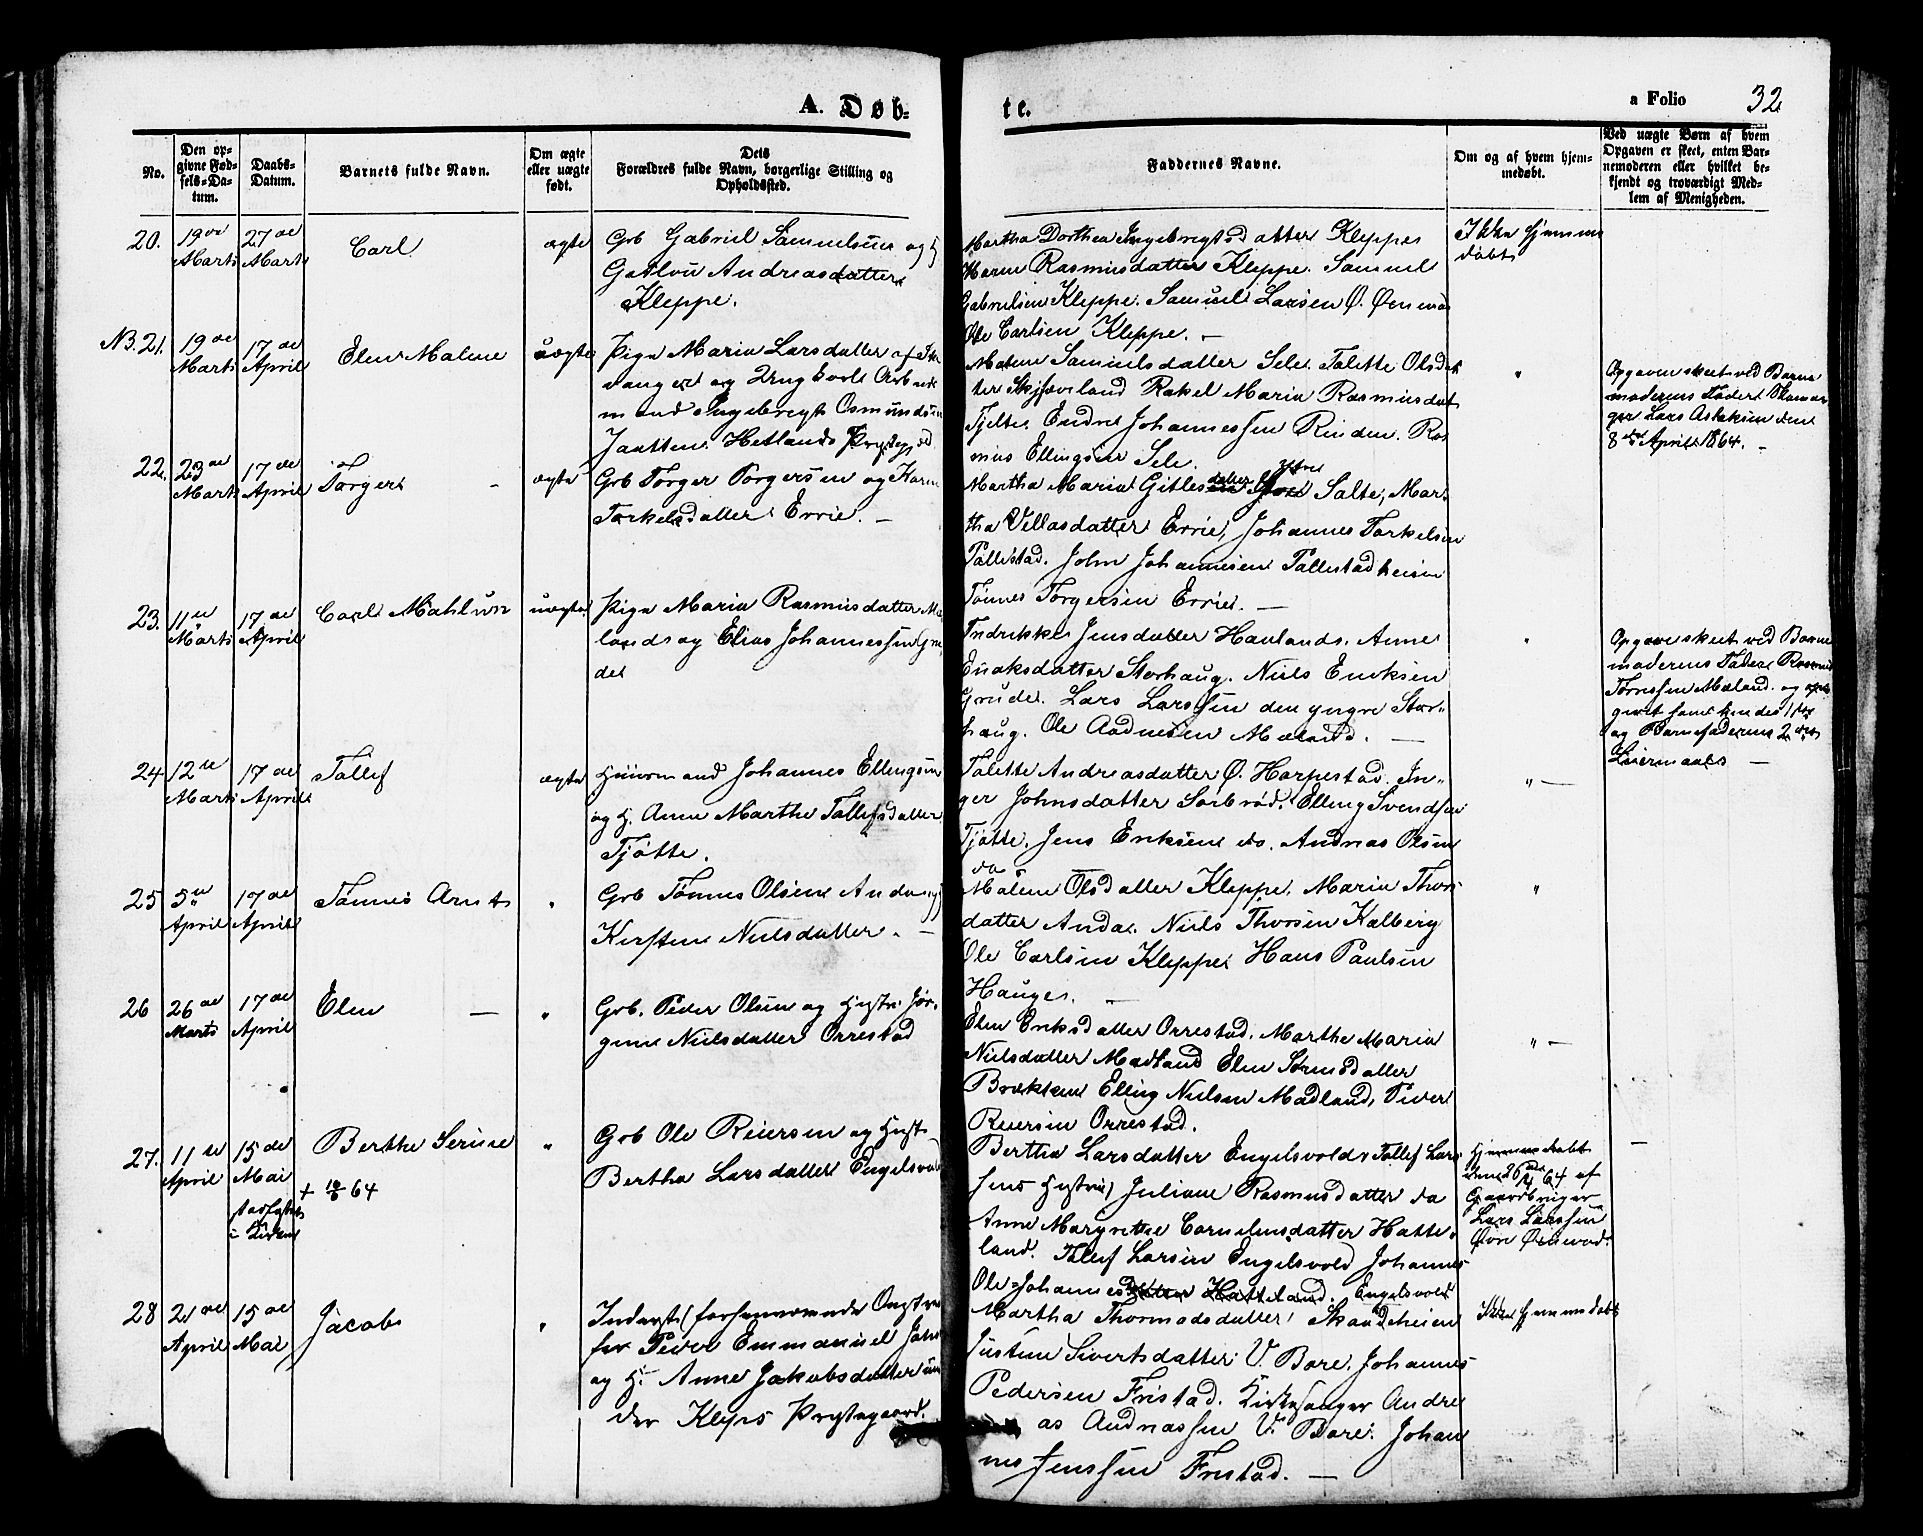 A. Døb=
te.
a Folio 32
No.
Den op=
givne Fød=
sels=Da=
tum.
Daabs=
Datum.
Barnets fulde Navn.
Om ægte
eller uægte
født.
Dets
Forældres fulde Navn, borgerlige Stilling og
Opholdssted.
Faddernes Navne.
Om og af hvem hjem=
medøbt.
Ved uægte Børn af hvem
Opgaven er skeet, enten Bar=
nemoderen eller hvilket be=
kjendt og troværdigt Med=
lem af Menigheden.
20.
19de
Marts
27de
Marts
Carl
ægte
Grb Gabriel Samuelsen og
Andreasdatter
Kleppe.
Martha Dorthea Ingebregtsdatter Kleppe
Maren Rasmusdatter Kleppe. Samuel
Gabrielsen Kleppe. Samuel Larsen Ø.
Ole Carlsen Kleppe. —
Ikke hjemme
døbt
NB. 21.
19de
Marts
17de
April
Elen Malene
uægte
Pige Maria Larsdatter af
og Ungkarl Arbeids
mand Ingebregt Osmundsen
Jaatten Hetlands Prgd
Malene Samuelsdatter Sele. Talette Olsdat
ter Skjæveland Rakel Maria Rasmusdat
Tjelte. Endre Johannessen Rinden. Ras
mus Ellingsen Sele.
"
Opgaven skeet ved Barne
moderens Fader
Lars Aslaksen den
8de April 1864. —
22.
23de
Marts
17de
April
Torger —
ægte
Grb Torger Torgersen og Karen
Torkelsdatter Errie. —
Martha Maria Gitlesdatter Ytre Salte, Mar=
tha Vellasdatter Errie, Johannes Torkelsen
Pollestad. John Johannesen
Tønnes Torgersen Errie. —
23.
11te
Marts
17de
April
Carl Mahlun
uægte
Pige Maria Rasmusdatter Mæ
land og Elias Johannessen Gru
det
Fredrikke Jensdatter Havland. Anne
Enoksdatter Storhaug. Niels Eriksen
Grude. Lars Larssen den yngre Stor=
haug. Ole Aadnesen Mæland. —
"
Opgave skeet ved Barne
moderens Fader Rasmus
Tørressen Mæland. og op
givet som hendes 1ste
og Barnefaderens 2det
Leiermaal —
24.
12te
Marts
17de
April
Tollef
ægte
Huusmand Johannes Ellingsen
og H. Anne Marthe Tollefsdatter
Tjøtte.
Talette Andreasdatter Ø. Horpestad. In=
ger Johnsdatter Sørbrød. Elling Svendsen
Tjøtte. Jens Eriksen do. Andreas Olsen
do
" —
25
5te
April
17de
April
Tønnes Arnt
"
Grb Tønnes Olsen Anda og
Kirstine Nielsdatter. —
Malene Olsdatter Kleppe. Maria Thors
datter Anda. Niels Thorsen Kalberg
Ole Carlsen Kleppe Hans Paulsen
Hauge. —
"
26
26de
Marts
17de
April
Elen —
"
Grb. Peder Olsen og Hustru Jør=
gine Nielsdatter Orrestad
Elen Eriksdatter Orrestad. Marthe Maria
Nielsdatter Madland Elen
Brækken Elling Nielsen Madland, Peder
Reiersen Orrestad.
" —
27.
11te
April
15de
Mai
i Kirken
Berthe Serine
+ 64
"
Grb Ole Reiersen og Hust
Bertha Larsdatter Engelsvold
Bertha Larsdatter Engelsvold Tollef Lars
sens Hustru, Juliane Rasmusdatter do
Anne Margrethe Cornelinsdatter Hatte=
land. Tollef Larsen Engelsvold Johannes
Ole=Johannesdatter Hatteland. Engelsvold
Hjemmedøbt
den 26de/4 64 af
Gaardbruger
Lars Larssen
—
28
21de
April
15de
Mai
Jacob
"
Inderst (forhenværende
Peder Emmanuel
og H. Anne Jakobsdatter un
der Kleps Prestegaard.
Martha Thormodsdatter
Justine Sivertsdatter V. Bore. Johannes
Pedersen Fristad. Kirkesanger Andre
as Andreassen V. Bore. Johan
nes Jenssen Fristad. —
Ikke hjemmedøbt